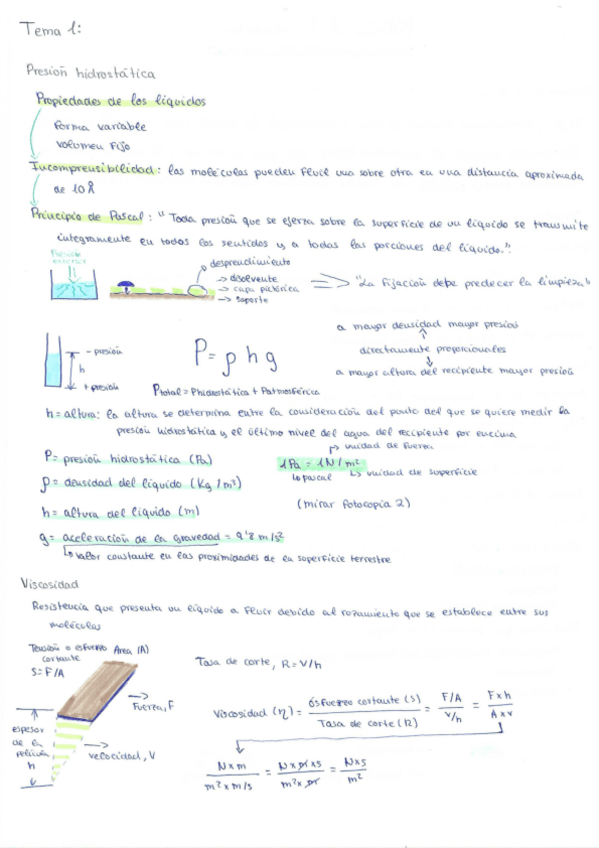 Tema 1:
Presión hidrostática
Propiedades de los líquidos
Forma variable
Volumen Fijo
Incomprensibilidad: las moléculas pueden fluir una sobre otra en una distancia aproximada
de 10 Å
Principio de Pascal: "Toda presión que se ejerza sobre la superficie de un líquido se transmite
íntegramente en todos los sentidos y a todas las porciones del líquido."
Presión
exterior
desprendimiento
→ disolvente
→ capa pictórica
→ soporte
⇒ "La fijación debe predecer la limpieza"
a mayor densidad mayor presión
- presión
h
+ presión
P = ρ h g
directamente proporcionales
a mayor altura del recipiente mayor presión
Ptotal = Phidrostática + Patmosférica
h = altura: la altura se determina entre la consideración del punto del que se quiere medir la
presión hidrostática y el último nivel del agua del recipiente por encima
P = presión hidrostática (Pa)
1Pa = 1N/m²
→ unidad de fuerza
↳ pascal
↳ unidad de superficie
ρ = densidad del líquido (Kg/m³)
h = altura del líquido (m)
(mirar fotocopia 2)
g = aceleración de la gravedad = 9'8 m/s²
↳ valor constante en las proximidades de la superficie terrestre
Viscosidad
Resistencia que presenta un líquido a fluir debido al rozamiento que se establece entre sus
moléculas
Tensión o esfuerzo
cortante
S = F/A
Area (A)
Tasa de corte, R = V/h
Fuerza, F
Viscosidad (η) = Esfuerzo cortante (S) / Tasa de corte (R) = F/A / V/h = F x h / A x v
espesor
de la
película
h
velocidad, V
N x m / m² x m/s = N x m x s / m² x m = N x s / m²